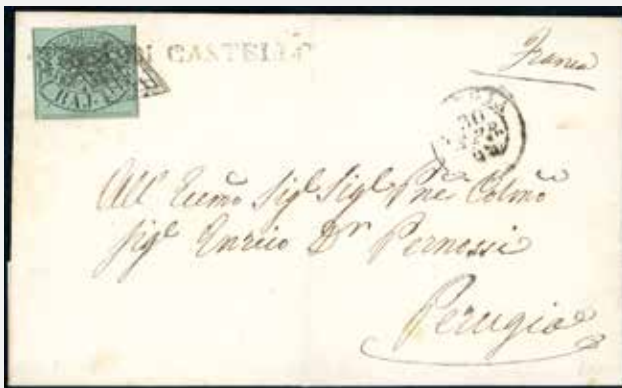 DI CASTELLO
Franca
BAJ
30
All' Sigl Sigl Pne Colmo
Sigl Enrico Dr Pernossi
Perugia